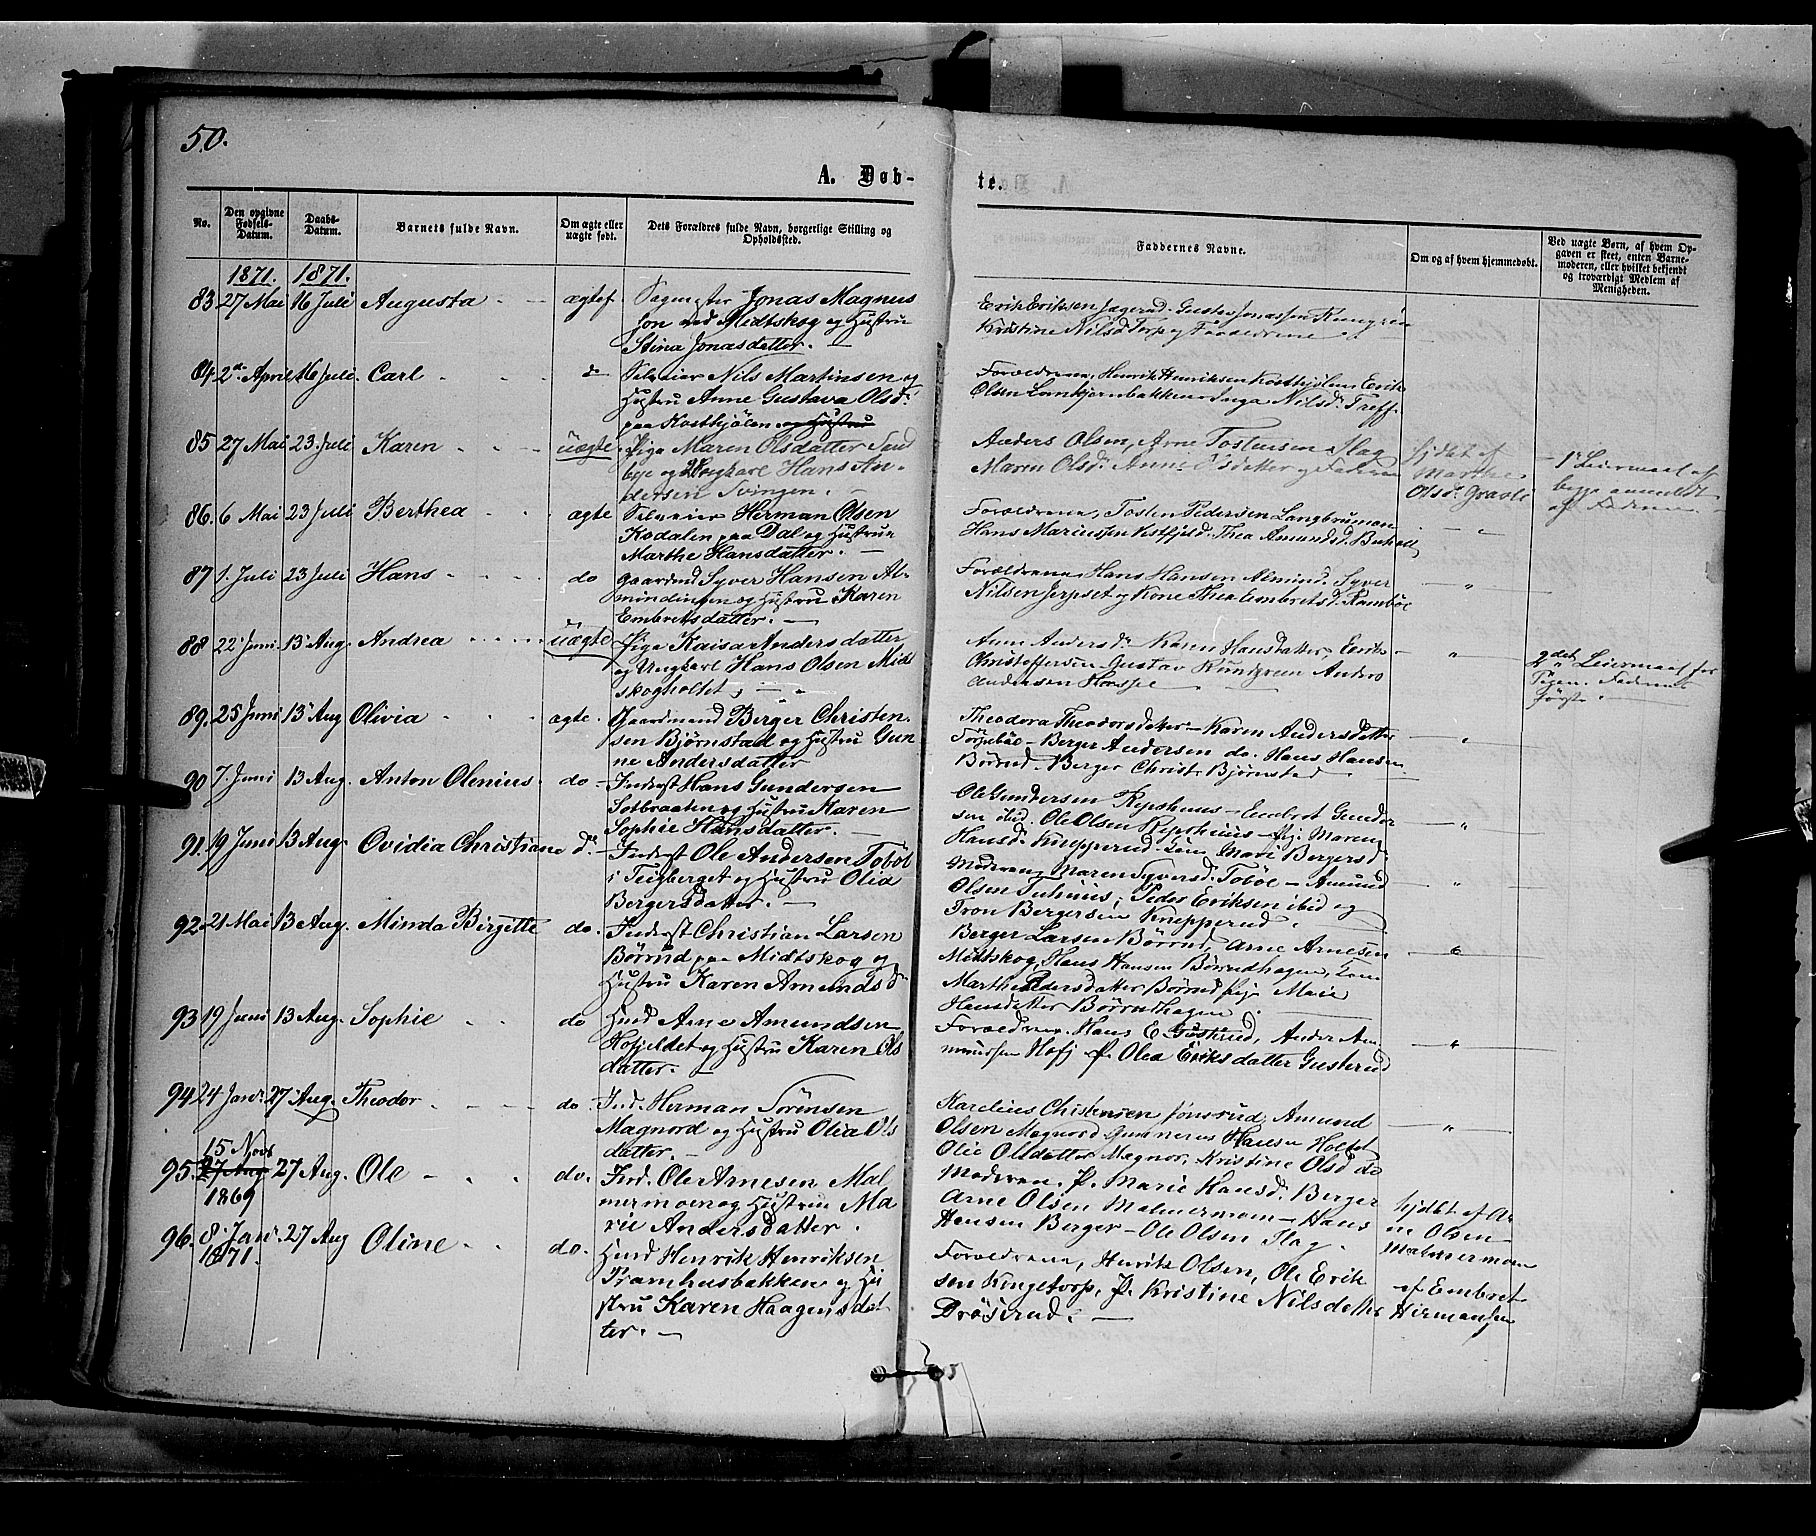 50.
A. Døb-
te.
No.
Den opgivne Fødsels-Datum.
Daabs-Datum.
Barnets fulde Navn.
Om ægte eller uægte født.
Dets Forældres fulde Navn, borgerlige Stilling og Opholdssted.
Faddernes Navne.
Om og af hvem hjemmedøbt.
Ved uægte Børn, af hvem Opgaven er skeet, enten Barnemoderen, eller hvilket bekjendt og troværdigt Medlem af Menigheden.
1871. 1871.
83 27 Mai 16 Juli Augusta - - ægtef.
Jonas Magnus
son ved Midtskog og Hustru
Stina Jonasdatter. -
Erik Eriksen Gustav Jonassen
Kristine Nilsd. Torp og Forældrene
84 2den April 16 Juli. Carl - - - do
Selveier Nils Martinsen og
Hustru Anne Gustava Olsd.
paa Kosthjølen. og Hustru
Forældrene, Henrik Henriksen Kosthjølen, Erik
Olsen Inga Nilsd. Treff.
85 27 Mai 23 Juli Karen - - - uægte.
Pige Maren Olsdatter
og Ungkarl Hans An-
dersen Svingen. -
Anders Olsen, Arne Tostensen Slag
Maren Olsd. Anne Olsdatter og Faderen
hjdbt af
Marthe
Olsd. Gravli
1ste Leiermaal af
begge anmeldt
af Faderen.
86. 6 Mai 23 Juli Berthea - - - ægte
Selveier Herman Olsen
Kodalen paa Dal og Hustru
Marthe Hansdatter. -
Forældrene, Tosten Pedersen
Hans Mariussen Thea Amundsd.
87 1. Juli 23 Juli Hans - - - do
Gaardmd Syver Hansen Al-
mindingen og Hustru Karen
Embretsdatter. -
Forældrene, Hans Hansen Almind. Syver
Nilsen Jerpset og Kone Thea Embretsd.
88 22 Juni 13 Aug. Andrea - - - uægte
Pige Kaisa Andersdatter
og Ungkarl Hans Olsen Midt
skogholtet, -
Anne Andersd. Karen Hansdatter, Erik
Christoffersen Gustav Anders
Andersen
2det Leiermaal for
Pigen. Faderens
første. -
89. 25 Juni 13 Aug Olivia - - - ægte.
Gaardmand Berger Christen-
sen Bjørnstad og Hustru Gun
ne Andersdatter
Theodora Theodorsdatter - Karen Andersdatter
Berger Andersen do. Hans Hansen
Børrud. Berger Christ. Bjørnstad
90 7 Juni 13 Aug. Anton Olenius. do -
Inderst Hans Gundersen
Sotbraaten og Hustru Karen
Sophie Hansdatter. -
Ole Gundersen Repshuus - Embret Gunder
sen ibid. Ole Olsen Repshuus - Maren
Hansd. Knepperud. Marie Bergersd.
91. 19 Juni 13 Aug. Ovidia Christiane do. -
Inderst Ole Andersen Tobøl
i Teigberget og Hustru Olia
Bergersdatter. -
Moderen, Maren Syversd. Tobøl - Amund
Olsen Peder Eriksen ibid og
Tron Bergersen Knepperud.
92. 21 Mai 13 Aug. Minda Birgitte do.
Inderst Christian Larsen
Børrud paa Midtskog og
Hustru Karen Amundsd.
Berger Larsen Børrud, Arne Arnesen
Midtskog, Hans Hansen Børrudhagen,
Marthe Pedersdatter Børrud Marie
Hansdatter Børrudhagen.
93 19 Juni 13 Aug. Sophie - - do
Husmd Arne Amundsen
Hofjeldet og Hustru Karen Ols
datter. -
Forældrene. Hans E. Gusterud, Anders Am-
mundsen Hofj P. Olea Eriksdatter Gusterud
94 24 Jan. 27 Aug. Theodor. - - - do.
Ind. Herman Sørensen
Magnord og Hustru Olia Ols
datter. -
Karelius Christensen Amund
Olsen Magnord Gunnerus Hansen Holtet
Olie Olsdatter Magnor, Kristine Olsd do
95. 15 Novb 27 Aug 1869 27 Aug. Ole - - - do.
Ind. Ole Arnesen Mal
mermoen og Hustru Ma
rie Andersdatter.
Moderen. P. Marie Hansd. Berger
Arne Olsen Malmermoen - Hans
Hansen Berger - Ole Olsen Slag -
hjdbt af Ar
ne Olsen
Malmermoen
96. 8 Jan. 1871. 27 Aug Oline - - do.
Husmd Henrik Henriksen
Pramhusbakken og Hu
stru Karen Haagensdat
ter. -
Forældrene, Henrik Olsen, Ole Erik
sen Kingetorp, P. Kristine Nilsdatter
Drøserud. -
af Embret
Hermansen